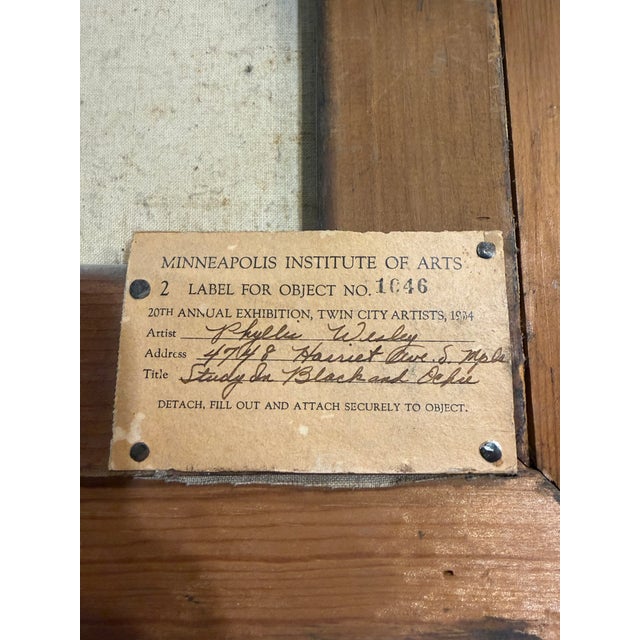 MINNEAPOLIS INSTITUTE OF ARTS
2 LABEL FOR OBJECT NO. 1046
20TH ANNUAL EXHIBITION, TWIN CITY ARTISTS, 1934
Artist Phyllis Wesley
Address 4748 Harriet Ave. S. Mpls
Title Study In Black and Ochre
DETACH, FILL OUT AND ATTACH SECURELY TO OBJECT.